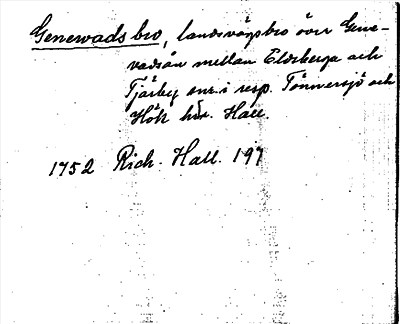 Genewads bro, landsvägsbro över Gene-
vadsån mellan Eldsberga och
Tjärby snr i resp. Tönnersjö och
Hök hdr. Hall.
1752 Rich. Hall. 197